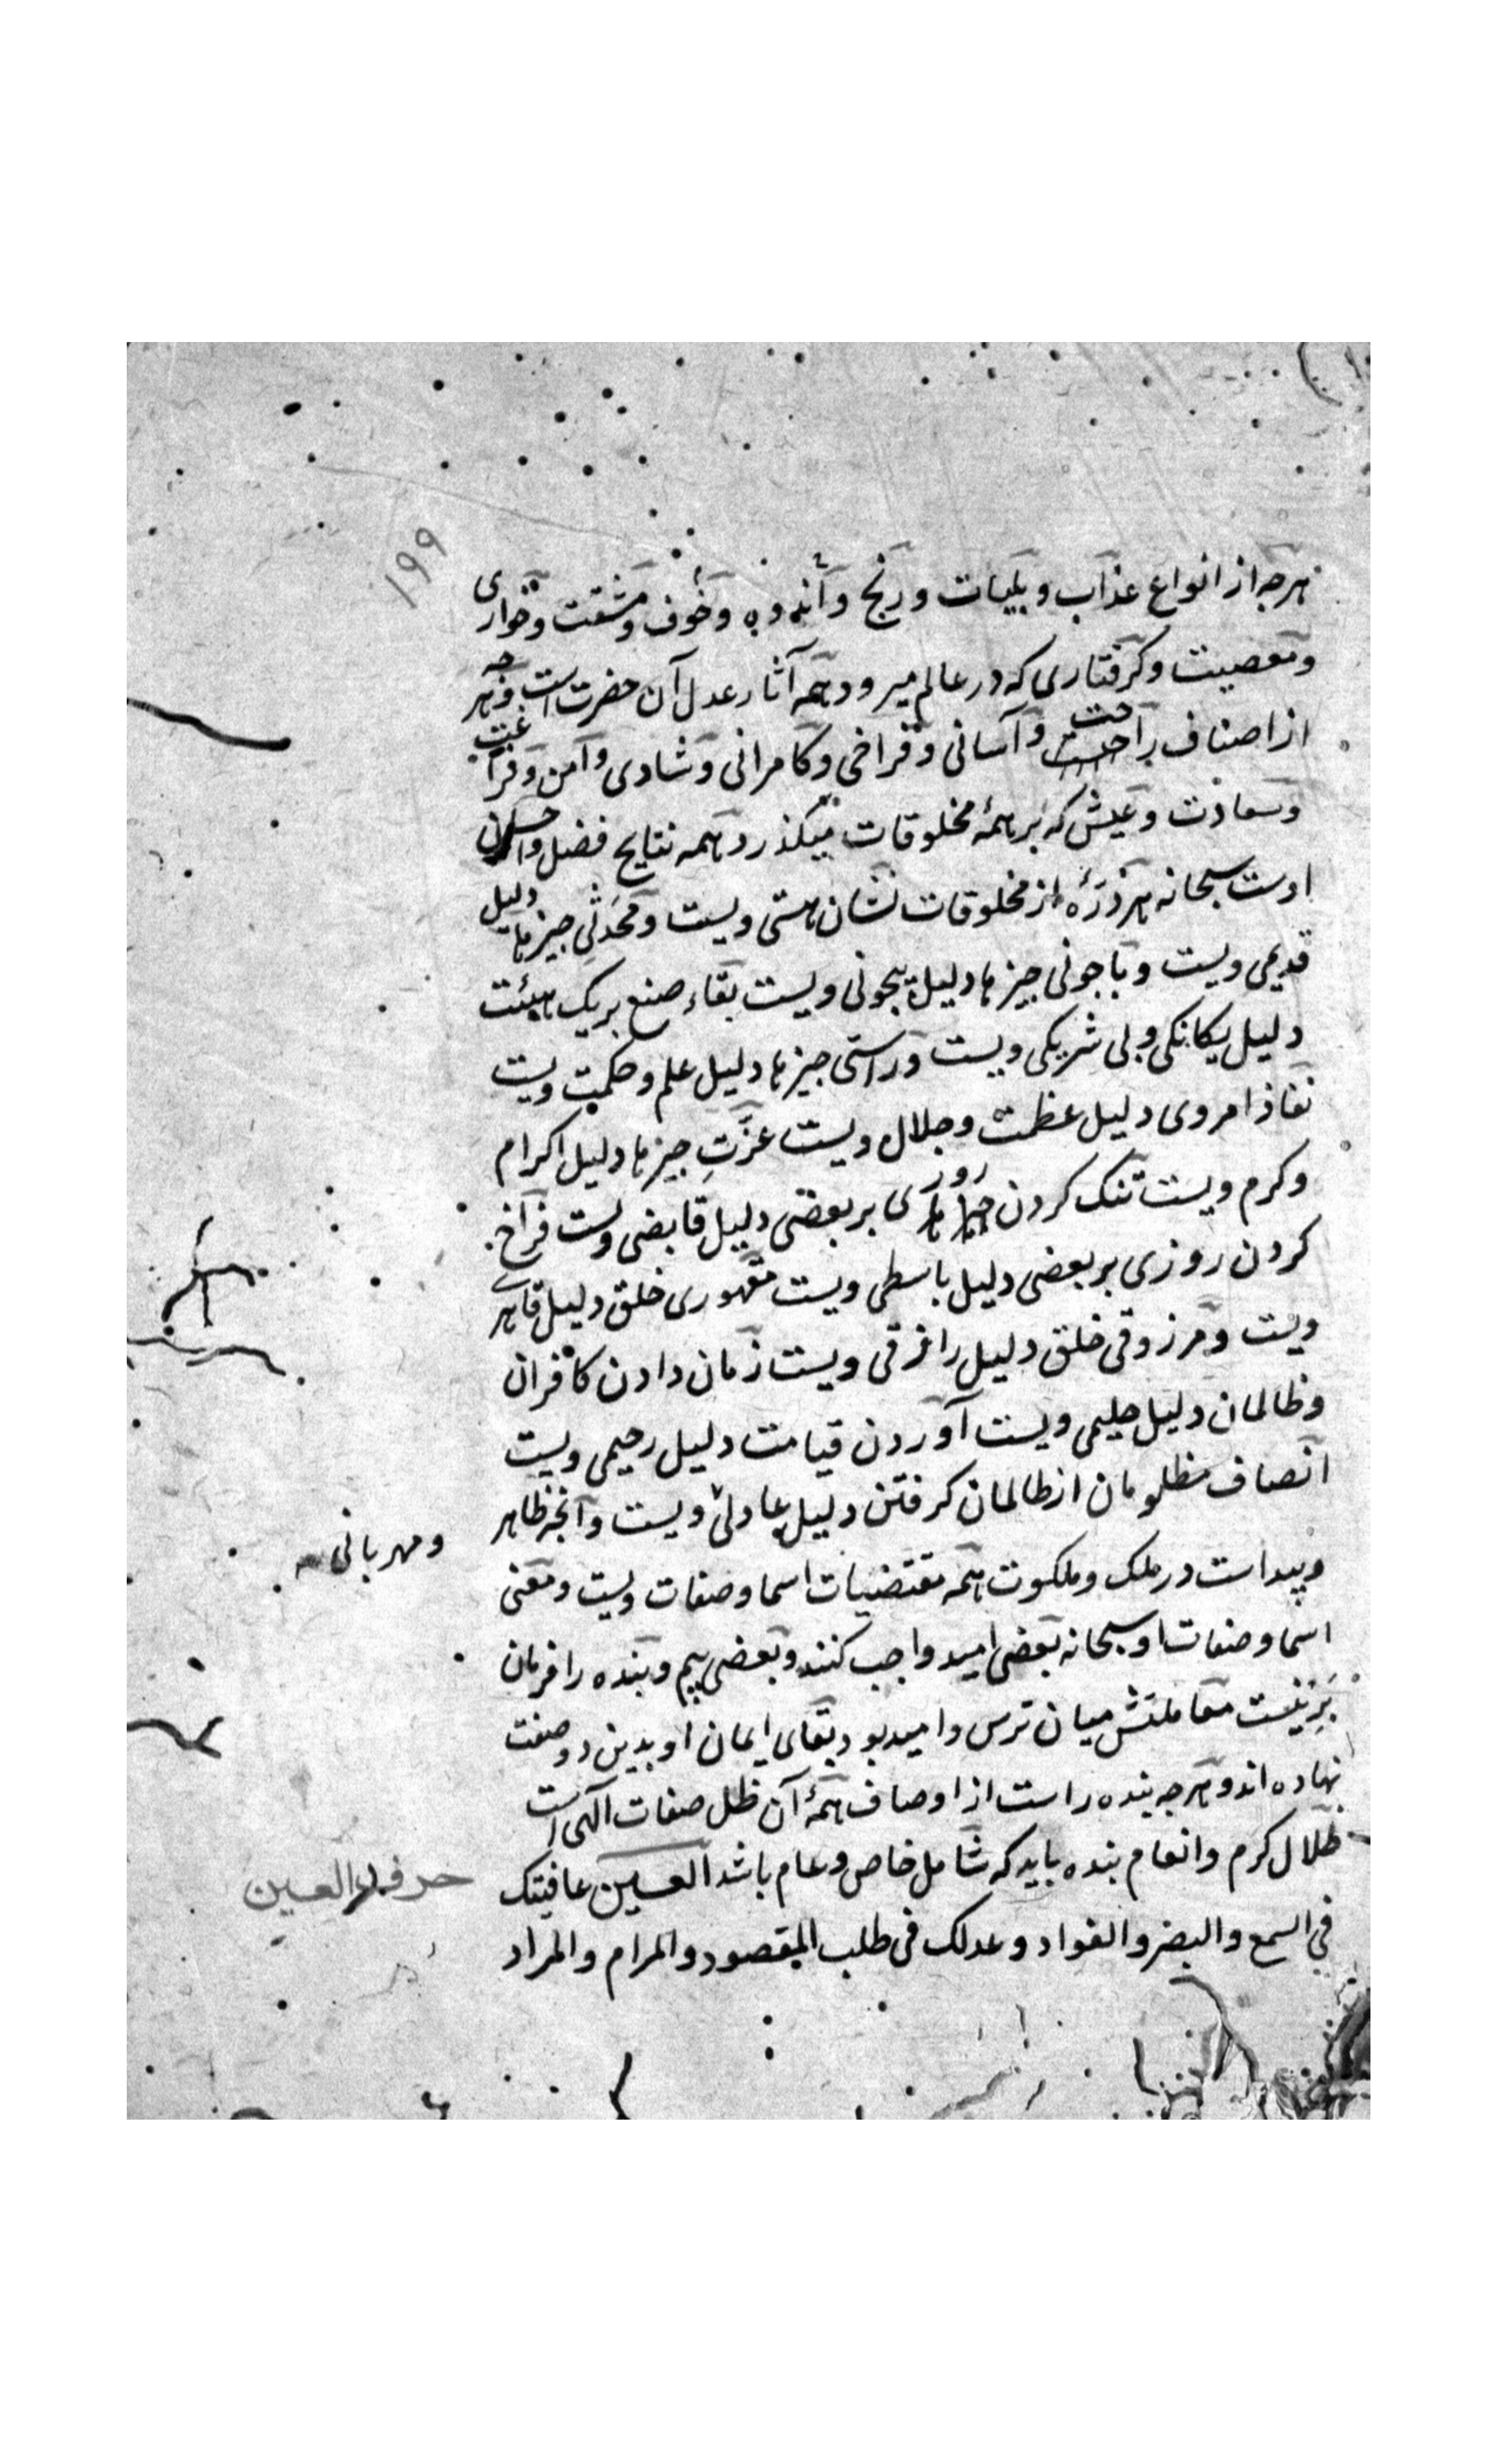 ۱۹۹
هرچه از انواع عذاب و بلیات و رنج و اندوه و خوف و مشقت و خواری
و معصیت و کرفتاری که در عالم میرود همه آثار عدل آن حضرت است و هر چه
از اصناف راحت و آسانی و فراخی و کامرانی و شادی و امن و فراغت
و سعادت و عیش که بر همهٔ مخلوقات میکذرد همه نتایج فضل و احسان
اوست سبحانه هر ذرّهٔ از مخلوقات نشان هستی ویست و محدَثی جیزها دلیل
قدیمی ویست و با جونی جیزها دلیل بیجونی ویست بقاء صنع بریک هیئت
دلیل یکانکی و بی شریکی ویست و راستی جیزها دلیل علم و حکمت ویست
نفاذ امر وی دلیل عظمت و جلال ویست عزّتِ جیزها دلیل اکرام
و کرم ویست تنک کردن روزی بر بعضی دلیل قابضی ویست فراخ
کردن روزی بر بعضی دلیل باسطی ویست مقهوری خلق دلیل قاهری
ویست و مرزوقی خلق دلیل رازقی ویست زمان دادن کافران
و ظالمان دلیل حلیمی ویست آوردن قیامت دلیل رحیمی ویست
انصاف مظلومان از ظالمان کرفتن دلیل عادلی ویست و آنجه ظاهر
و مهربانی
و پیداست در ملک و ملکوت همه مقتضیات اسما و صفات ویست و معنی
اسما و صفات او سبحانه بعضی امید واجب کنند و بعضی بیم و بنده را فرمان
برینست معاملتش میان ترس و امید بود بقای ایمان او بدین دو صفت
نهاده اند و هرجه بنده راست از اوصاف همهٔ آن ظل صفات الهی است
ظلال کرم و انعام بنده باید که شامل خاص و عام باشد العین عافیتک
حرف العین
فی السمع و البصر و الفواد و عدلک فی طلب المقصود و المرام و المراد